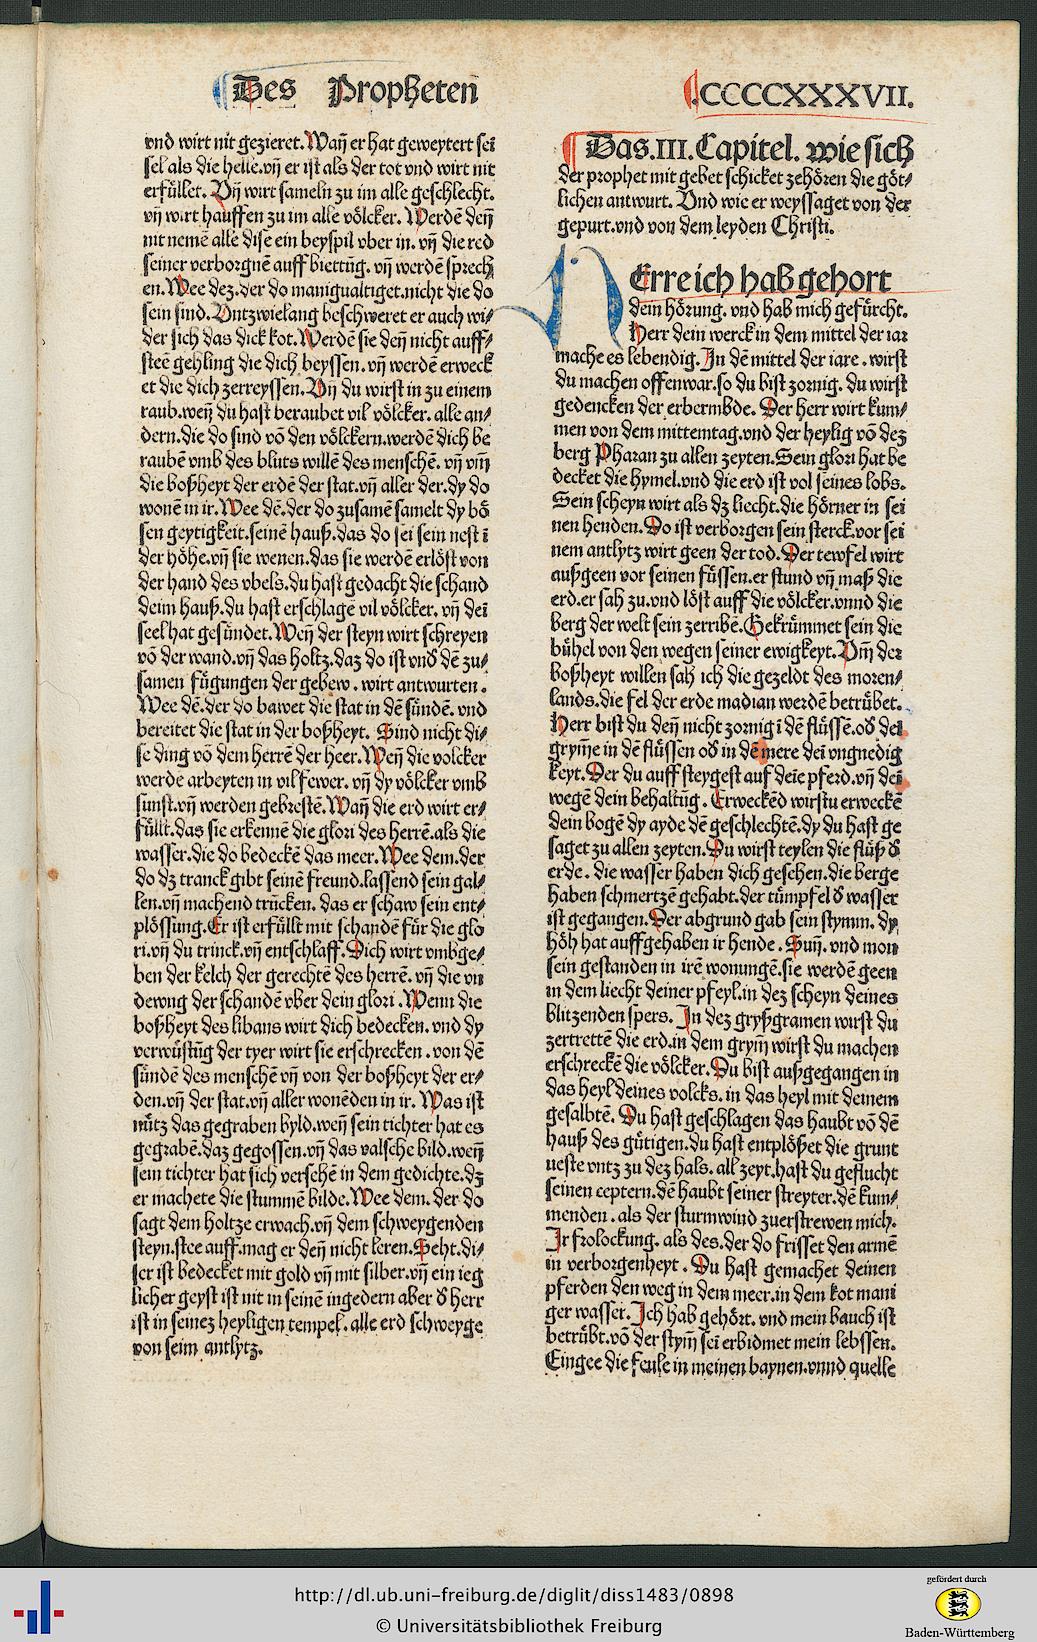 Des Propheten
.CCCCXXXVII.
vnd wirt nit gezieret. Wañ er hat geweytert sei
sel als die helle. vñ er ist als der tot vnd wirt nit
erfüllet. Vñ wirt sameln zu im alle geschlecht.
vñ wirt hauffen zu im alle völcker. Werdē deñ
nit nemē alle dise ein beyspil vber in. vñ die red
seiner verborgnē auff biettūg. vñ werdē sprech
en. Wee dez. der do manigualtiget. nicht die do
sein sind. Vntzwielang beschweret er auch wi⸗
der sich das dick kot. Werdē sie deñ nicht auff⸗
steē gehling die dich beyssen. vñ werdē erweck
et die dich zerreyssen. Vñ du wirst in zu einem
raub. weñ du hast beraubet vil völcker. alle an⸗
dern. die do sind vō den völckern. werdē dich be
raubē vmb des bluts willē des menschē. vñ vm̄
die boßheyt der erdē der stat. vñ aller der. dy do
wonē in ir. Wee dē. der do zusamē samelt dy bö
sen geytigkeit. seinē hauß. das do sei sein nest ī
der höhe. vñ sie wenen. das sie werdē erlöst von
der hand des vbels. du hast gedacht die schand
deim hauß. du hast erschlagē vil völcker. vñ deī
seel hat gesündet. Weñ der steyn wirt schreyen
vō der wand. vñ das holtz. daz do ist vnd̕ dē zu⸗
samen fügungen der gebew. wirt antwurten.
Wee dē. der do bawet die stat in dē sündē. vnd
bereitet die stat in der boßheyt. Sind nicht di⸗
se ding vō dem herrē der heer. Weñ die volcker
werdē arbeyten in vil fewer. vñ dy völcker vmb
sunst. vñ werden gebrestē. Wañ die erd wirt er⸗
füllt. das sie erkennē die glori des herrē. als die
wasser. die do bedeckē das meer. Wee dem. der
do dz tranck gibt seinē freund. lassend sein gal⸗
len. vñ machend trūcken. das er schaw sein ent⸗
plössung. Er ist erfüllt mit schandē für die glo
ri. vñ du trinck. vñ entschlaff. Dich wirt vmbge⸗
ben der kelch der gerechtē des herrē. vñ die vn
dewng der schandē vber dein glori. Wenn die
boßheyt des libans wirt dich bedecken. vnd dy
verwüstūg der tyer wirt sie erschrecken. von dē
sündē des menschē vñ von der boßheyt der er⸗
den. vñ der stat. vñ aller wonēden in ir. Was ist
nütz das gegraben byld. weñ sein tichter hat es
gegrabē. daz gegossen. vñ das valsche bild. weñ
sein tichter hat sich versehē in dem gedichte. dz
er machete die stummē bilde. Wee dem. der do
sagt dem holtze erwach. vñ dem schweygenden
steyn. stee auff. mag er deñ nicht leren. Seht. di⸗
ser ist bedecket mit gold vñ mit silber. vñ ein ieg
licher geyst ist nit in seinē ingedern aber d̕ herr
ist in seinez heyligen tempel. alle erd schweyge
von seim antlytz.
Das. III. Capitel. wie sich
der prophet mit gebet schicket zehören die göt⸗
lichen antwurt. Vnd wie er weyssaget von der
gepurt. vnd von dem leyden Christi.
HErre ich hab gehort
dein hörung. vnd hab mich gefürcht.
Herr dein werck in dem mittel der iar
mache es lebendig. In dē mittel der iare. wirst
du machen offenwar. so du bist zornig. du wirst
gedencken der erbermbde. Der herr wirt kum⸗
men von dem mittemtag. vnd der heylig vō dez
berg Pharan zu allen zeyten. Sein glori hat be
decket die hymel. vnd die erd ist vol seines lobs.
Sein scheyn wirt als dz liecht. die hörner in sei
nen henden. Do ist verborgen sein sterck. vor sei
nem antlytz wirt geen der tod. Der tewfel wirt
außgeen vor seinen füssen. er stund vñ maß die
erd. er sah zu. vnd löst auff die völcker. vnnd die
berg der welt sein zerribē. Gekrümmet sein die
bühel von den wegen seiner ewigkeyt. Vm̄ der
boßheyt willen sah ich die gezeldt des moren⸗
lands. die fel der erde madian werdē betrübet.
Herr bist du deñ nicht zornig ī dē flüssē. od̕ dei
grym̄e in dē flüssen od̕ in dē mere deī vngnedig
keyt. Der du auff steygest auf deīe pferd. vñ deī
wegē dein behaltūg. Erweckēd wirstu erweckē
dein bogē dy ayde dē geschlechtē. dy du hast ge
saget zu allen zeyten. Du wirst teylen die flüß d̕
erde. die wasser haben dich gesehen. die berge
haben schmertzē gehabt. der tümpfel d̕ wasser
ist gegangen. Der abgrund gab sein stymm. dy
höh hat auffgehaben ir hende. Suñ. vnd mon
sein gestanden in irē wonungē. sie werdē geen
in dem liecht deiner pfeyl. in dez scheyn deines
blitzenden spers. In dez gryßgramen wirst du
zertrettē die erd. in dem grym̄ wirst du machen
erschreckē die völcker. Du bist außgegangen in
das heyl deines volcks. in das heyl mit deinem
gesalbtē. Du hast geschlagen das haubt vō dē
hauß des gütigen. du hast entplößet die grunt
ueste vntz zu dez hals. all zeyt. hast du geflucht
seinen ceptern. dē haubt seiner streyter. dē kum⸗
menden. als der sturmwind zuerstrewen mich.
Ir frolockung. als des. der do frisset den armē
in verborgenheyt. Du hast gemachet deinen
pferden den weg in dem meer. in dem kot mani
ger wasser. Ich hab gehört. vnd mein bauch ist
betrübt. vō der stym̄ seī erbidmet mein lebssen.
Eingee die feule in meinen baynen. vnnd quelle
http://dl.ub.uni-freiburg.de/diglit/diss1483/0898
© Universitätsbibliothek Freiburg
gefördert durch
Baden-Württemberg